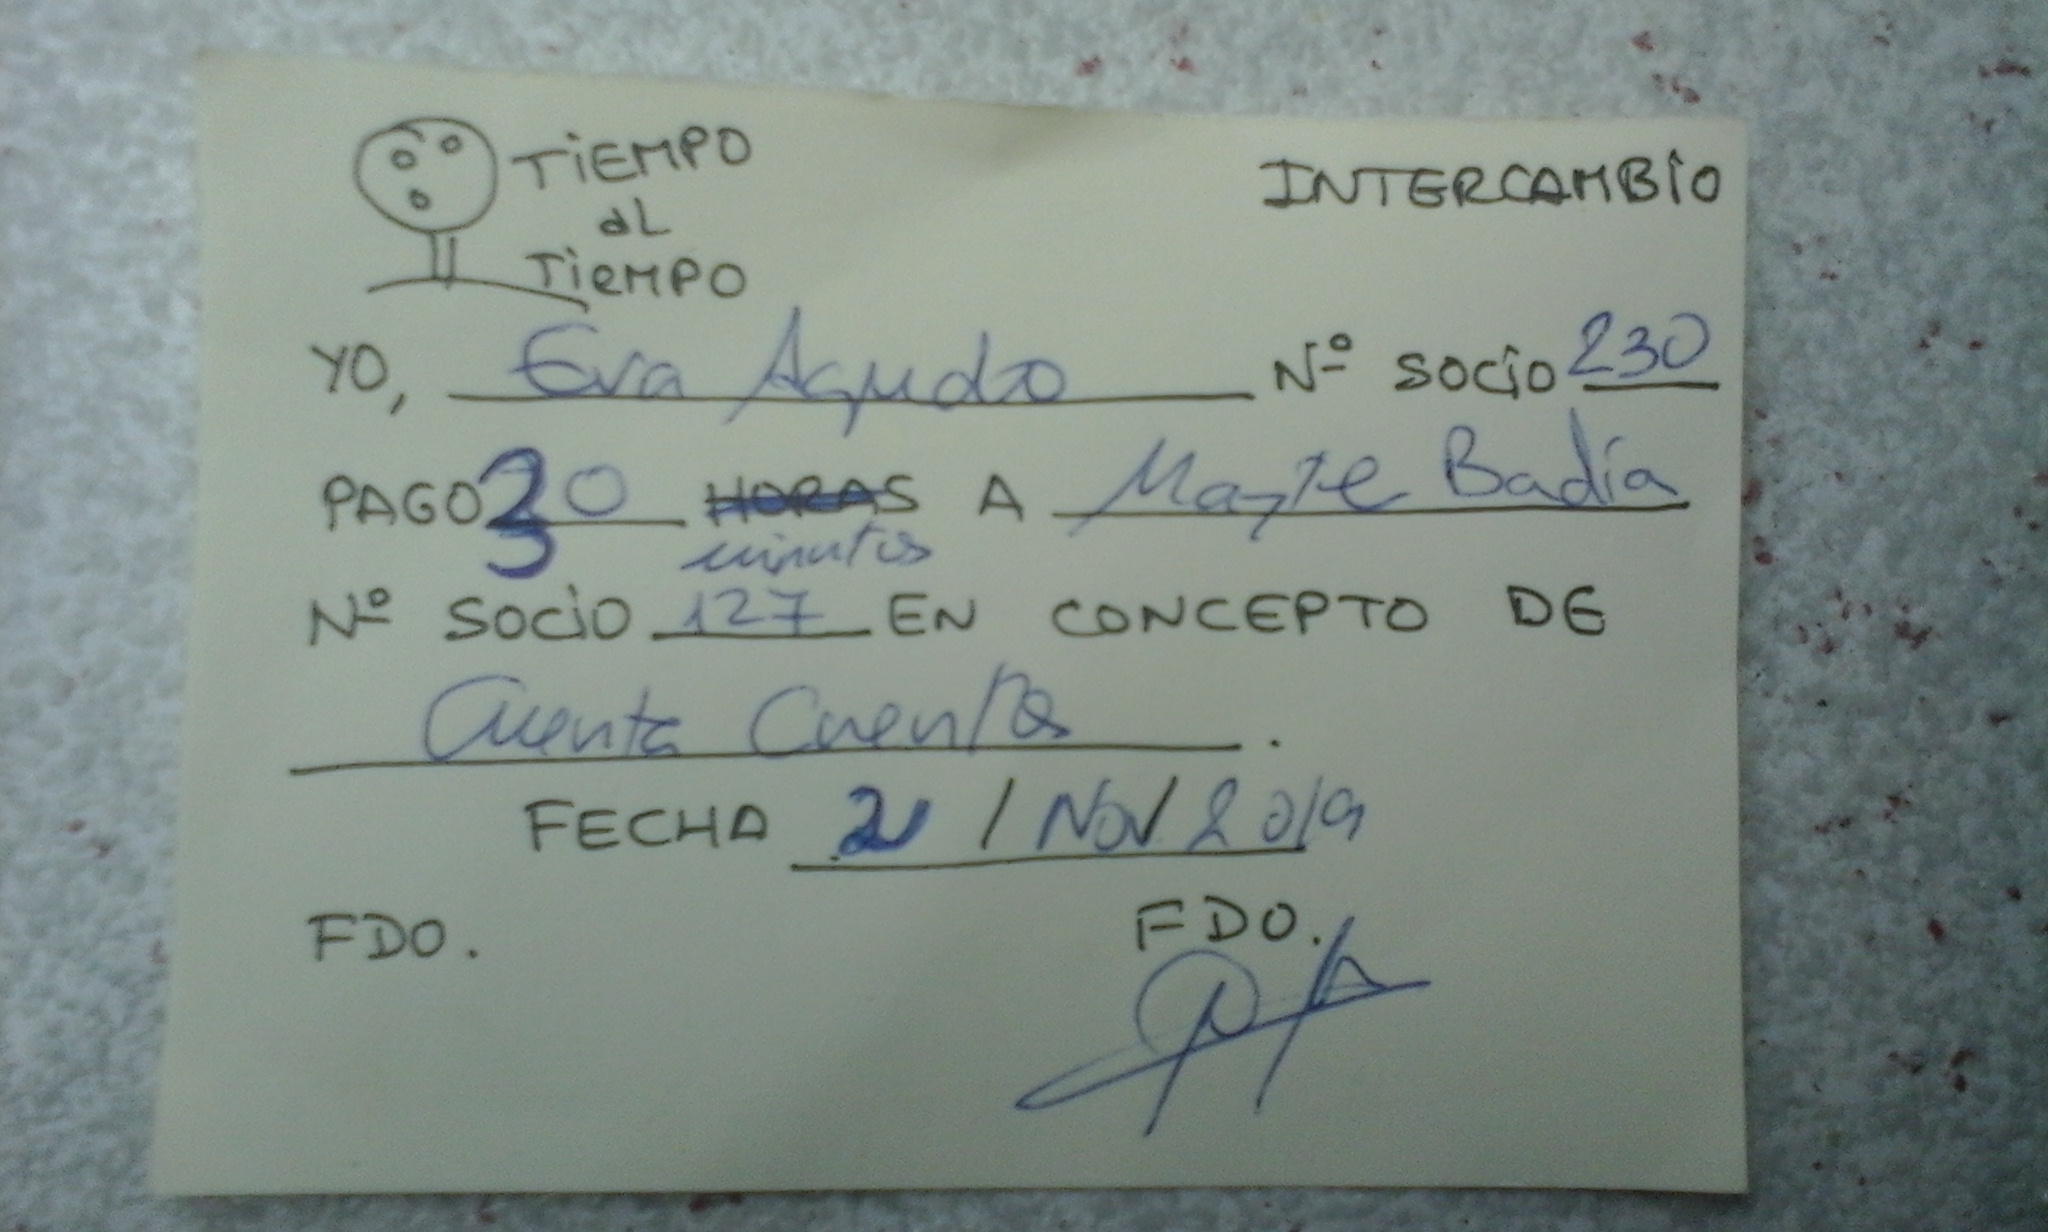 TiEMPO
aL
TiEMPO
INTERCAMBiO
YO, Eva Agudo Nº SOCiO 230
PAGO 30 HORAS A Mayte Badía
minutos
Nº SOCiO 127 EN CONCEPTO DE
Cuenta Cuentos.
FECHA / Nov / 2019
FDO. FDO.